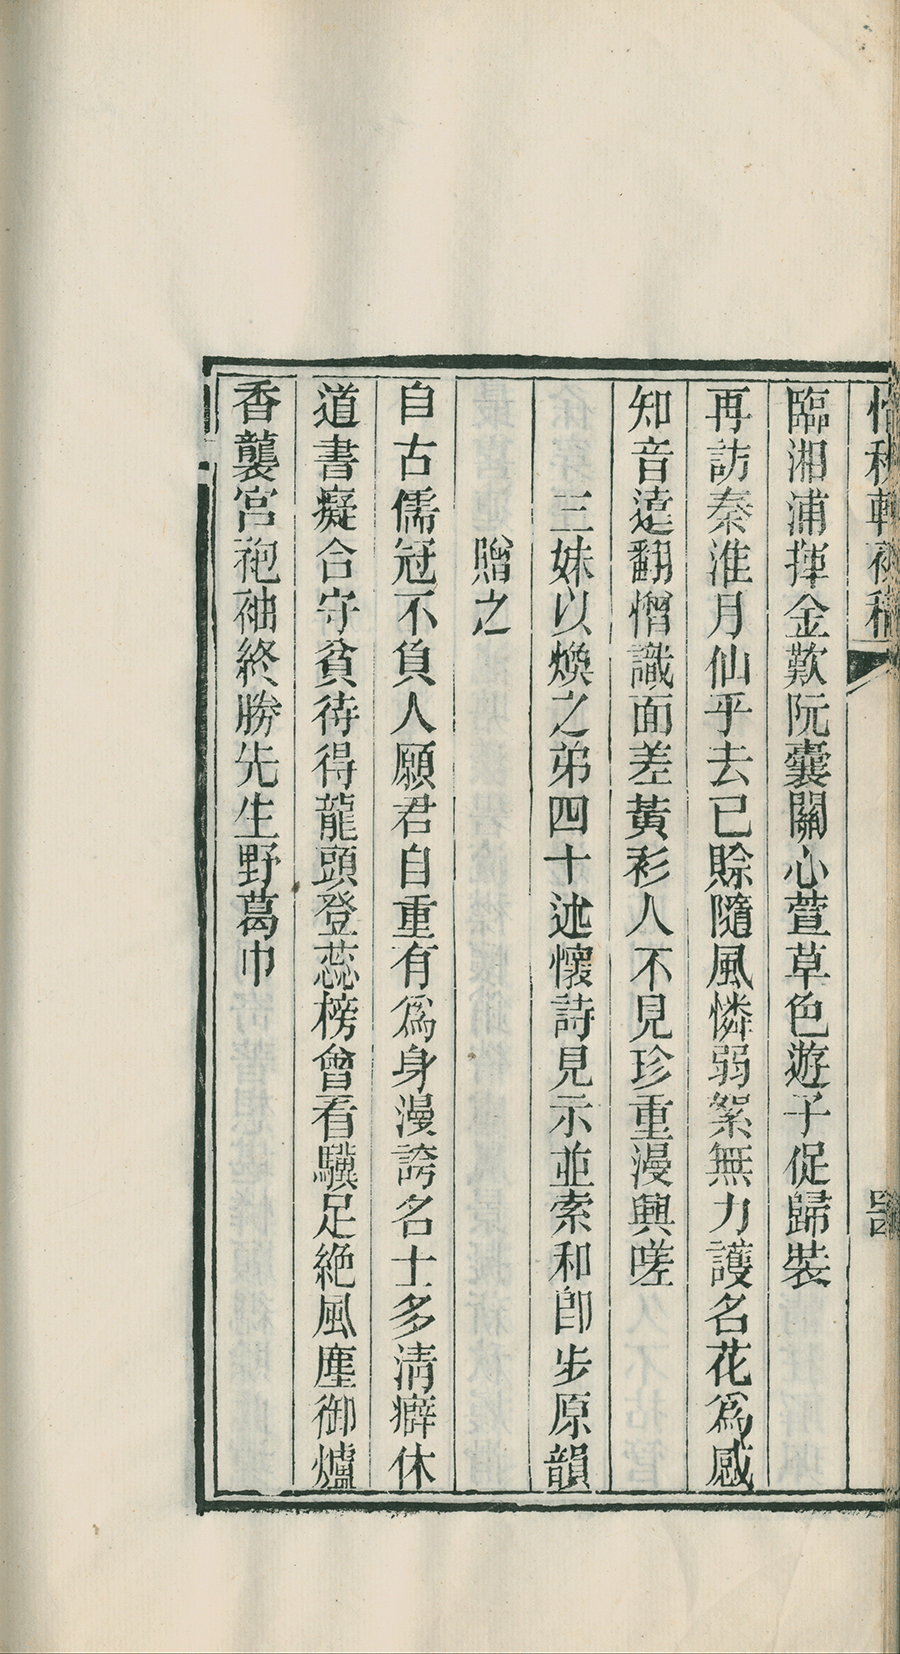 臨湘浦揮金歎阮囊關心萱草色遊子促歸裝
再訪秦淮月仙乎去已賒隨風憐弱絮無力護名花爲感
知音遠翻憎識面差黃衫人不見珍重漫興嗟
三妹以煥之弟四十述懷詩見示並索和卽步原韻
贈之
自古儒冠不負人願君自重有爲身漫誇名士多淸癖休
道書癡合守貧待得龍頭登蕊榜曾看驥足絕風塵御爐
香襲宮袍袖終勝先生野葛巾